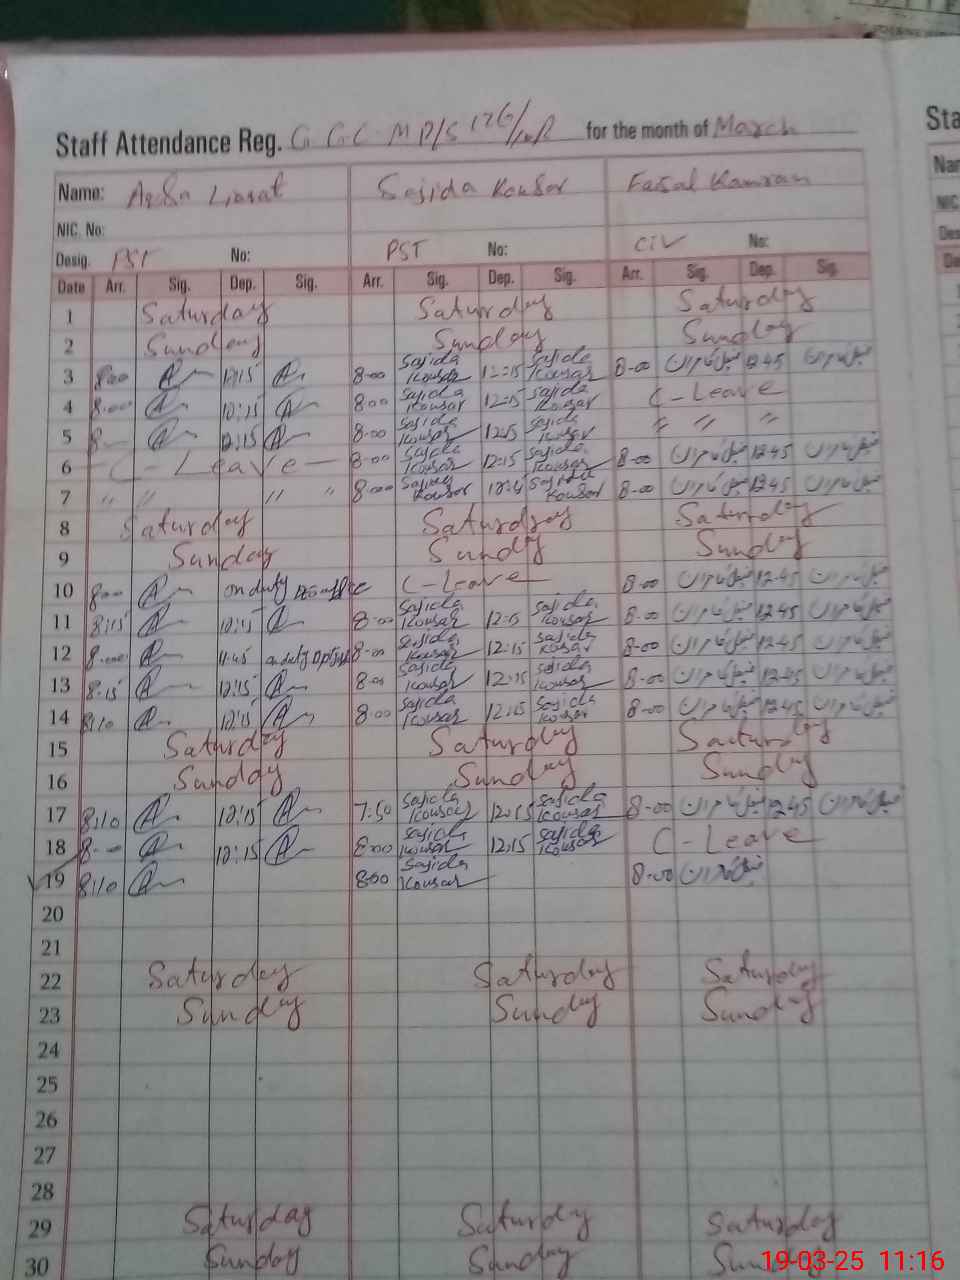 Staff Attendance Reg. G G C M P/S 126/ for the month of March
Name: Aqsa Liaqat Sajida Kousar Faisal Kamran
NIC. No:
Desig. PST No: PST No: CIV No:
Date Arr. Sig. Dep. Sig. Arr. Sig. Dep. Sig. Arr. Sig. Dep. Sig.
1 Saturday Saturday Saturday
2 Sunday Sunday Sunday
3 8:00 12:15 8-00 Sajida Kousar 12:15 Sajida Kousar 8-00 12 45
4 8:00 12:15 8-00 Sajida Kousar 12:15 Sajida Kousar C-Leave
5 8- 12:15 8-00 Sajida Kousar 12:15 Sajida Kousar " " "
6 C-Leave 8-00 Sajida Kousar 12:15 Sajida Kousar 8-00 12 45
7 " " " " 8-00 Sajida Kousar Sajida Kousar 8-00 12 45
8 Saturday Saturday Saturday
9 Sunday Sunday Sunday
10 8:00 on duty C-Leave 8-00 12-45
11 8:15 12:15 8-00 Sajida Kousar 12:15 Sajida Kousar 8-00 12 45
12 8:00 11:45 on duty 8-00 Sajida Kousar 12:15 Sajida Kousar 8-00 12 45
13 8:15 12:15 8-00 Sajida Kousar 12:15 Sajida Kousar 8-00 12-45
14 8:10 12:15 8-00 Sajida Kousar 12:15 Sajida Kousar 8-00 12 45
15 Saturday Saturday Saturday
16 Sunday Sunday Sunday
17 8:10 12:15 7:50 Sajida Kousar 12:15 Sajida Kousar 8-00 12 45
18 8-00 12:15 8:00 Sajida Kousar 12:15 Sajida Kousar C-Leave
19 8:10 8:00 Sajida Kousar 8-00
20
21
22 Saturday Saturday Saturday
23 Sunday Sunday Sunday
24
25
26
27
28
29 Saturday Saturday Saturday
30 Sunday Sunday
19-03-25 11:16
Sta
Nar
NIC
Des